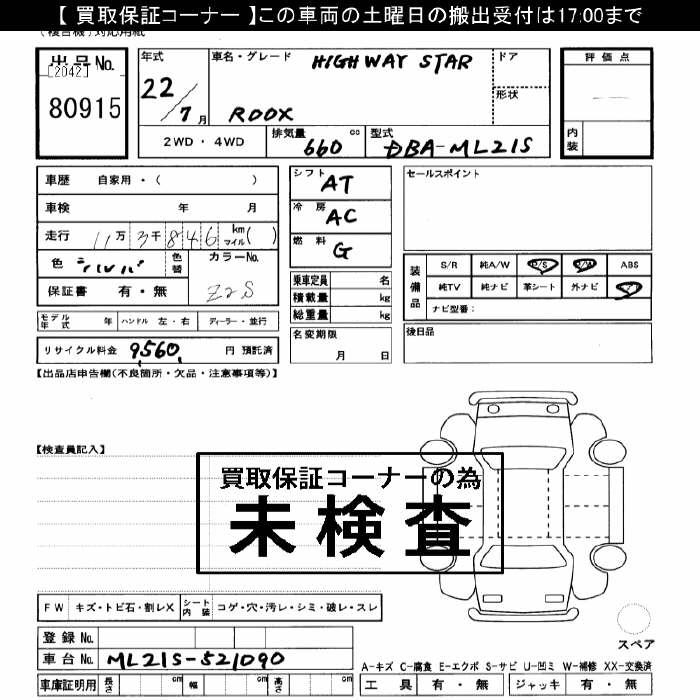 【 買取保証コーナー 】この車両の土曜日の搬出受付は17:00まで
(複合機)対応用紙
出品No.
[2042]
80915
年式
22/7月
車名・グレード
HIGHWAY STAR
ROOX
ドア
形状
評価点
内装
2WD ・ 4WD
排気量
660 cc
型式
DBA-ML21S
車歴 自家用・( )
車検 年 月
走行 11万 3千 8 4 6 km マイル( )
色 シルバ 色替
カラーNo.
Z2S
保証書 有・無
シフト AT
冷房 AC
燃料 G
乗車定員 名
積載量 kg
総重量 kg
セールスポイント
装備品
S/R 純A/W P/S P/W ABS
純TV 純ナビ 革シート 外ナビ
ナビ型番:
モデル年式 年 ハンドル 左・右 ディーラー・並行
名変期限
月 日
後日品
リサイクル料金 9,560 円 預託済
【出品店申告欄(不良箇所・欠品・注意事項等)】
【検査員記入】
買取保証コーナーの為
未検査
FW キズ・トビ石・割レX シート内装 コゲ・穴・汚レ・シミ・破レ・スレ
登録 No.
車台 No. ML21S-521090
スペア
A-キズ C-腐食 E-エクボ S-サビ U-凹ミ W-補修 XX-交換済
車庫証明用 長さ cm 幅 cm 高さ cm
工具 有・無 ジャッキ 有・無